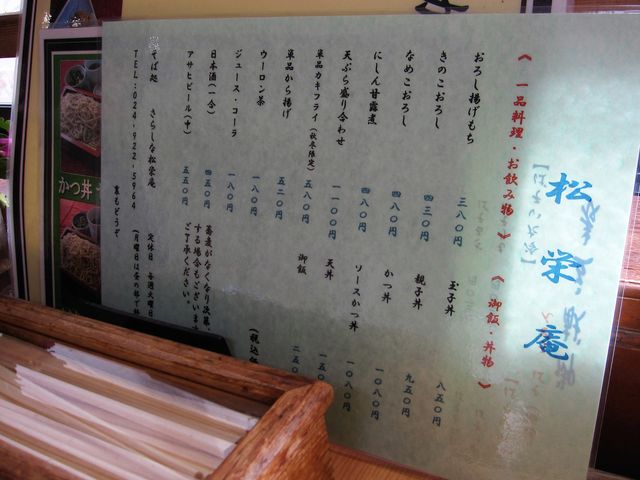 松栄庵
《一品料理・お飲み物》
《御飯・丼物》
おろし揚げもち 三八〇円
きのこおろし 四三〇円
なめこおろし 四八〇円
にしん甘露煮 四八〇円
天ぷら盛り合わせ 一一〇〇円
単品カキフライ(秋冬限定) 五八〇円
単品から揚げ 五二〇円
ウーロン茶 一八〇円
ジュース・コーラ 一八〇円
日本酒(一合) 四五〇円
アサヒビール(中) 五五〇円
玉子丼 八五〇円
親子丼 九五〇円
かつ丼 一〇八〇円
ソースかつ丼 一〇八〇円
天丼
御飯
(税込
蕎麦がなくなり次第
する場合もございます
ご了承ください。
そば処 さらしな松栄庵 定休日 毎週火曜日
TEL:024-922-5964
裏もどうぞ
かつ丼